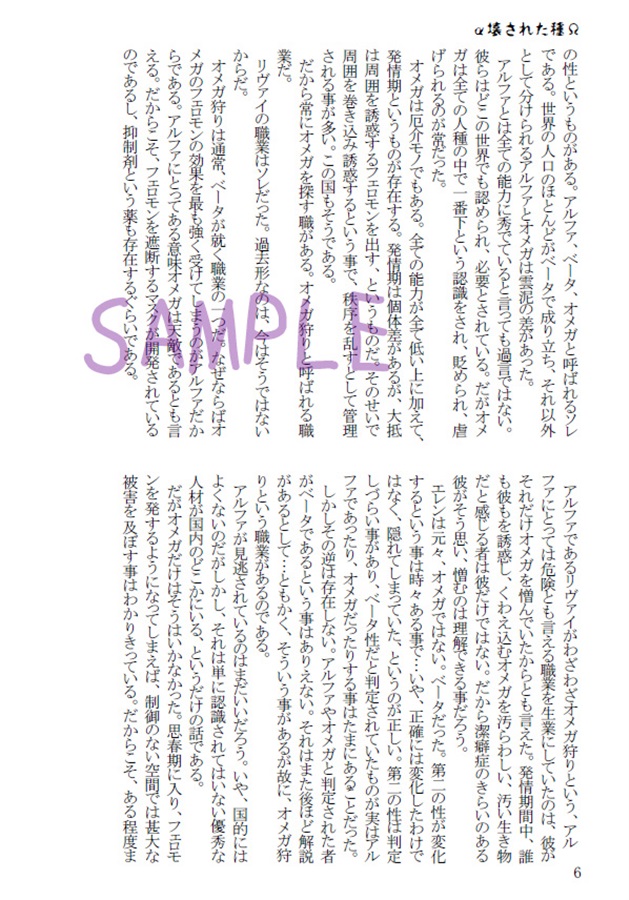 α壊された種Ω
の性というものがある。アルファ、ベータ、オメガと呼ばれるソレ
である。世界の人口のほとんどがベータで成り立ち、それ以外
として分けられるアルファとオメガは雲泥の差があった。
アルファとは全ての能力に秀でていると言っても過言ではない。
彼らはどこの世界でも認められ、必要とされている。だがオメ
ガは全ての人種の中で一番下という認識をされ、貶められ、虐
げられるのが常だった。
オメガは厄介モノでもある。全ての能力が全て低い上に加えて、
発情期というものが存在する。発情期は個体差があるが、大抵
は周囲を誘惑するフェロモンを出す、というものだ。そのせいで
周囲を巻き込み誘惑するという事で、秩序を乱すとして管理
される事が多い。この国もそうである。
だから常にオメガを探す職がある。オメガ狩りと呼ばれる職
業だ。
リヴァイの職業はソレだった。過去形なのは、今はそうではない
からだ。
オメガ狩りは通常、ベータが就く職業の一つだ。なぜならばオ
メガのフェロモンの効果を最も強く受けてしまうのがアルファだか
らである。アルファにとってある意味オメガは天敵であるとも言
える。だからこそ、フェロモンを遮断するマスクが開発されている
のであるし、抑制剤という薬も存在するぐらいである。
アルファであるリヴァイがわざわざオメガ狩りという、アル
ファにとっては危険とも言える職業を生業にしていたのは、彼が
それだけオメガを憎んでいたからとも言えた。発情期間中、誰
も彼もを誘惑し、くわえ込むオメガを汚らわしい、汚い生き物
だと感じる者は彼だけではない。だから潔癖症のきらいのある
彼がそう思い、憎むのは理解できる事だろう。
エレンは元々、オメガではない。ベータだった。第二の性が変化
するという事は時々ある事で…いや、正確には変化したわけで
はなく、隠れてしまっていた、というのが正しい。第二の性は判定
しづらい事があり、ベータ性だと判定されていたものが実はアル
ファであったり、オメガだったりする事はたまにあることだった。
しかしその逆は存在しない。アルファやオメガと判定された者
がベータであるという事はありえない。それはまた後ほど解説
があるとして…ともかく、そういう事があるが故に、オメガ狩
りという職業があるのである。
アルファが見逃されているのはまだいいだろう。いや、国的には
よくないのだがしかし、それは単に認識されてはいない優秀な
人材が国内のどこかにいる、というだけの話である。
だがオメガだけはそうはいかなかった。思春期に入り、フェロモ
ンを発するようになってしまえば、制御のない空間では甚大な
被害を及ぼす事はわかりきっている。だからこそ、ある程度ま
SAMPLE
6